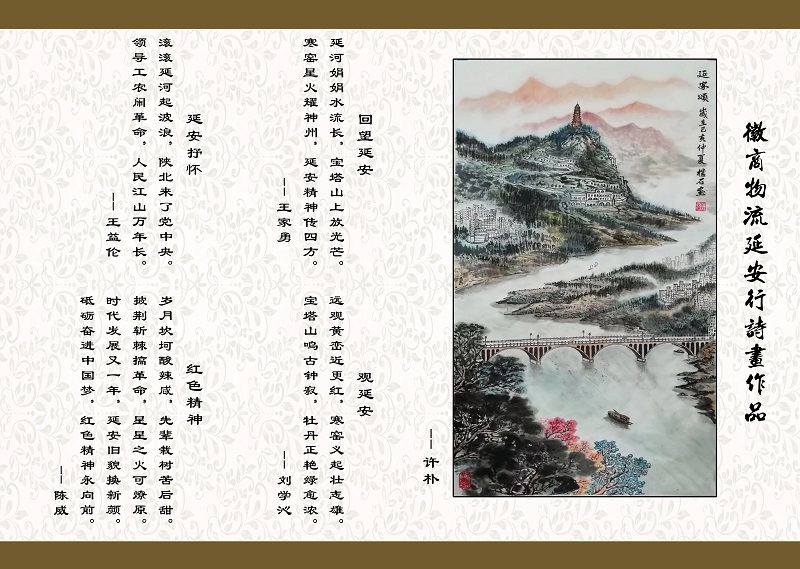 徽商物流延安行詩畫作品
延安頌 歲己亥仲夏
——许朴
回望延安
延河娟娟水流长，宝塔山上放光芒。
寒窑星火耀神州，延安精神传四方。
——王家勇
观延安
远观黄峦近更红，寒窑义起壮志雄。
宝塔山鸣古钟寂，牡丹正艳绿愈浓。
——刘学沁
延安抒怀
滚滚延河起波浪，陕北来了党中央。
领导工农闹革命，人民江山万年长。
——王益伦
红色精神
岁月坎坷酸辣咸，先辈栽树苦后甜。
披荆斩棘搞革命，星星之火可燎原。
时代发展又一年，延安旧貌换新颜。
砥砺奋进中国梦，红色精神永向前。
——陈威